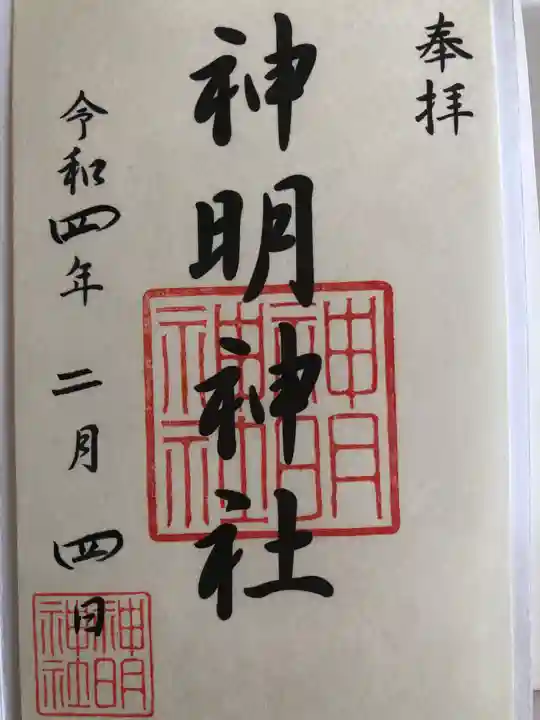 奉拝
神明神社
神明神社
令和四年 二月 四日
神明神社